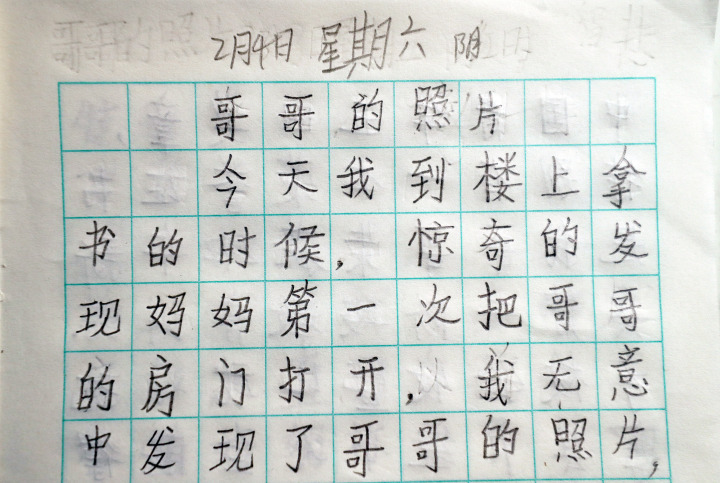 2月4日 星期六 阴
哥哥的照片
今天我到楼上拿
书的时候，惊奇的发
现妈妈第一次把哥哥
的房门打开，我无意
中发现了哥哥的照片，